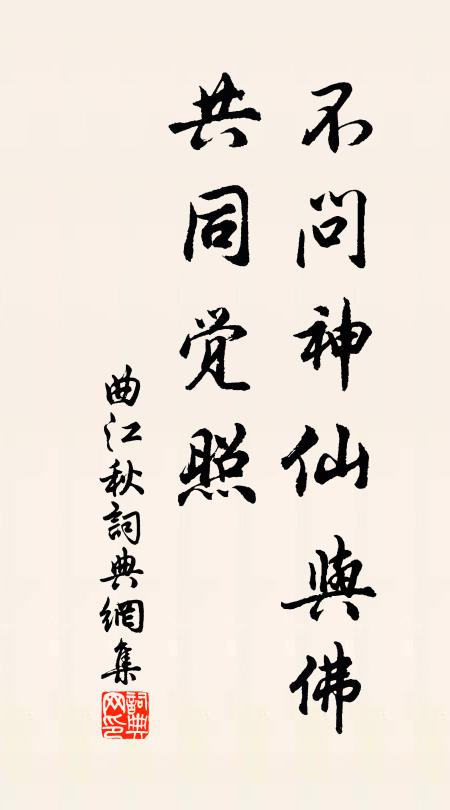 不问神仙與佛
共同觉照
曲江秋詞典網集
詞典网印